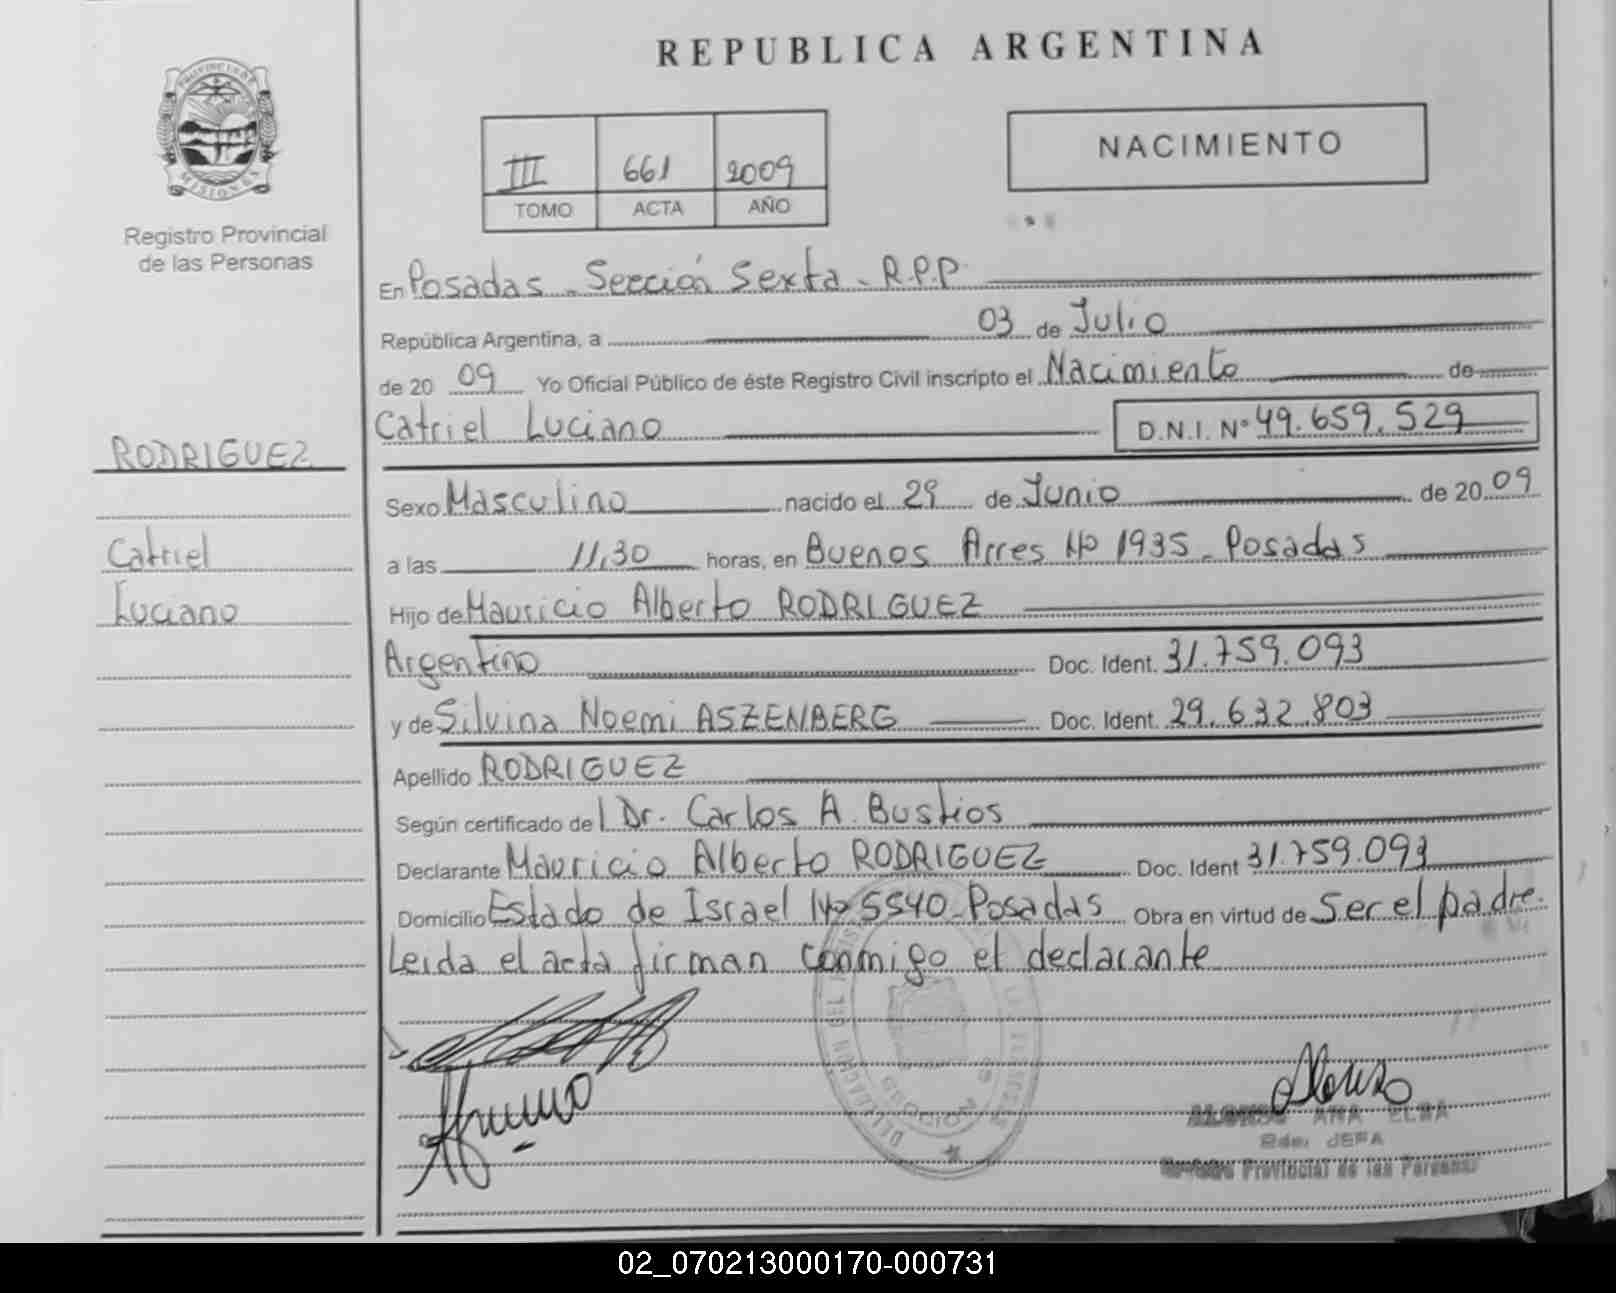 REPUBLICA ARGENTINA
PROVINCIA DE
MISIONES
Registro Provincial
de las Personas
III 661 2009
TOMO ACTA AÑO
NACIMIENTO
En Posadas - Sección Sexta - R.P.P.
República Argentina, a 03 de Julio
de 20 09 Yo Oficial Público de éste Registro Civil inscripto el Nacimiento de
Catriel Luciano D.N.I. Nº 49.659.529
RODRIGUEZ
Catriel
Luciano
Sexo Masculino nacido el 29 de Junio de 20 09
a las 11,30 horas, en Buenos Aires Nº 1935 - Posadas
Hijo de Mauricio Alberto RODRIGUEZ
Argentino Doc. Ident. 31.759.093
y de Silvina Noemi ASZENBERG Doc. Ident. 29.632.803
Apellido RODRIGUEZ
Según certificado del Dr. Carlos A. Bustios
Declarante Mauricio Alberto RODRIGUEZ Doc. Ident 31.759.093
Domicilio Estado de Israel Nº 5540 - Posadas Obra en virtud de Ser el padre.
Leida el acta firman conmigo el declarante
Alonso
ALONSO ANA ELBA
JEFA
Registro Provincial de las Personas
02_070213000170-000731